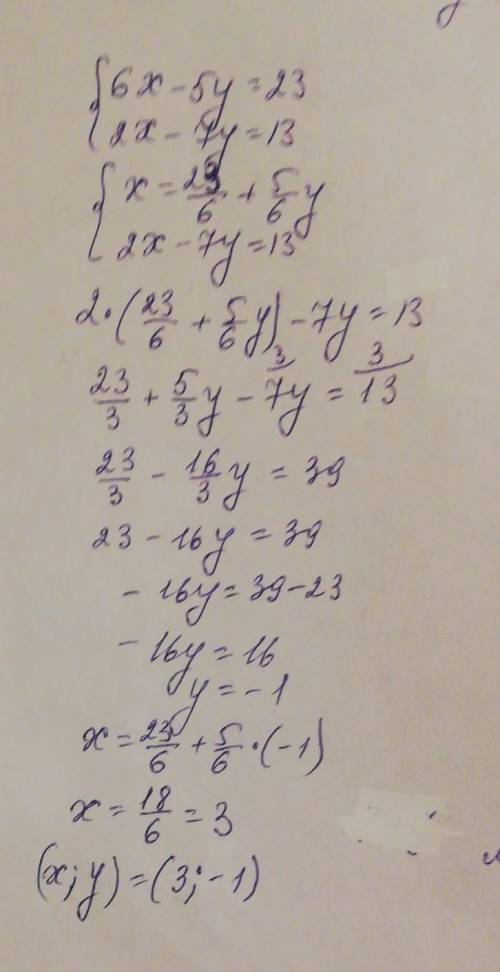 {6x - 5y = 23
2x - 7y = 13
{x = 23/6 + 5/6 y
2x - 7y = 13
2 · (23/6 + 5/6 y) - 7y = 13
23/3 + 5/3 y - 7y 3/ = 13 3/
23/3 - 16/3 y = 39
23 - 16y = 39
- 16y = 39 - 23
- 16y = 16
y = - 1
x = 23/6 + 5/6 · (-1)
x = 18/6 = 3
(x; y) = (3; - 1)